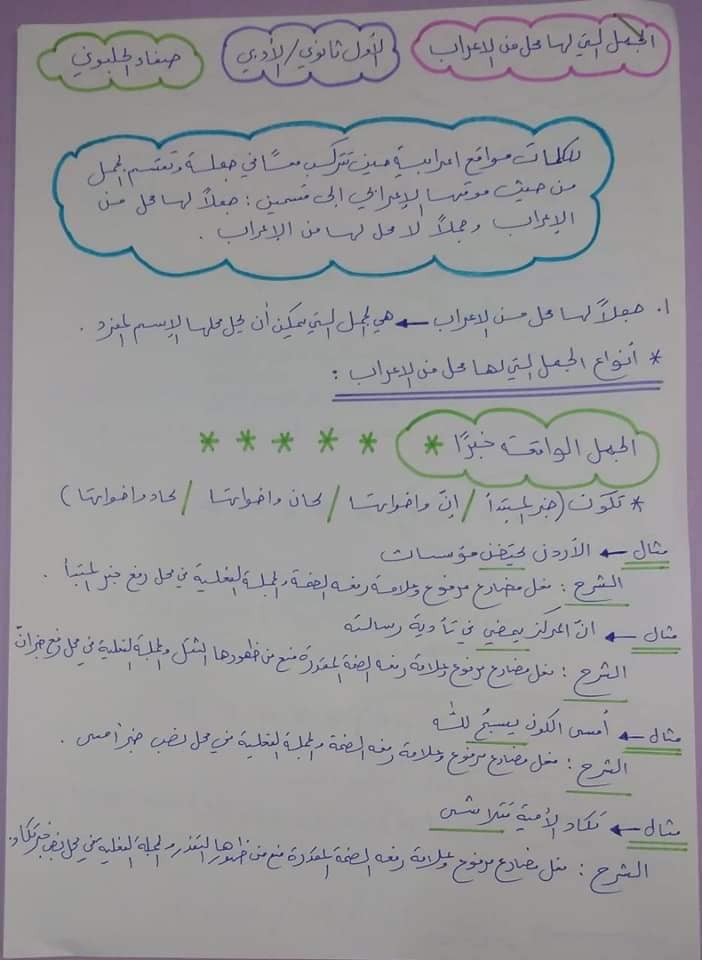 الجمل التي لها محل من الإعراب
الأول ثانوي / الأدبي
صفاء الحلبوني
للكلمات مواقع اعرابية حين تتركب معًا في جملة وتقسم الجمل
من حيث موقعها الإعرابي الى قسمين : جملاً لها محل من
الإعراب وجملاً لا محل لها من الإعراب .
١. جملاً لها محل من الإعراب ← هي الجمل التي يمكن أن يحل محلها الإسم المفرد .
* أنواع الجمل التي لها محل من الإعراب :
الجمل الواقعة خبرًا * * * * * *
* تكون (خبر المبتدأ / إنّ واخواتها / كان واخواتها / كاد واخواتها)
مثال ← الأردن يحتضن مؤسسات
الشرح : فعل مضارع مرفوع وعلامة رفعه الضمة والجملة الفعلية في محل رفع خبر المبتدأ .
مثال ← انّ المركز يمضي في تأدية رسالته
الشرح : فعل مضارع مرفوع وعلامة رفعه الضمة المقدرة منع من ظهورها الثقل والجملة الفعلية في محل رفع خبر انّ
مثال ← أمسى الكون يسبحُ للّه
الشرح : فعل مضارع مرفوع وعلامة رفعه الضمة والجملة الفعلية في محل نصب خبر أمسى .
مثال ← تكاد الأمية تتلاشى
الشرح : فعل مضارع مرفوع وعلامة رفعه الضمة المقدرة منع من ظهورها التعذر والجملة الفعلية في محل نصب خبر تكاد.